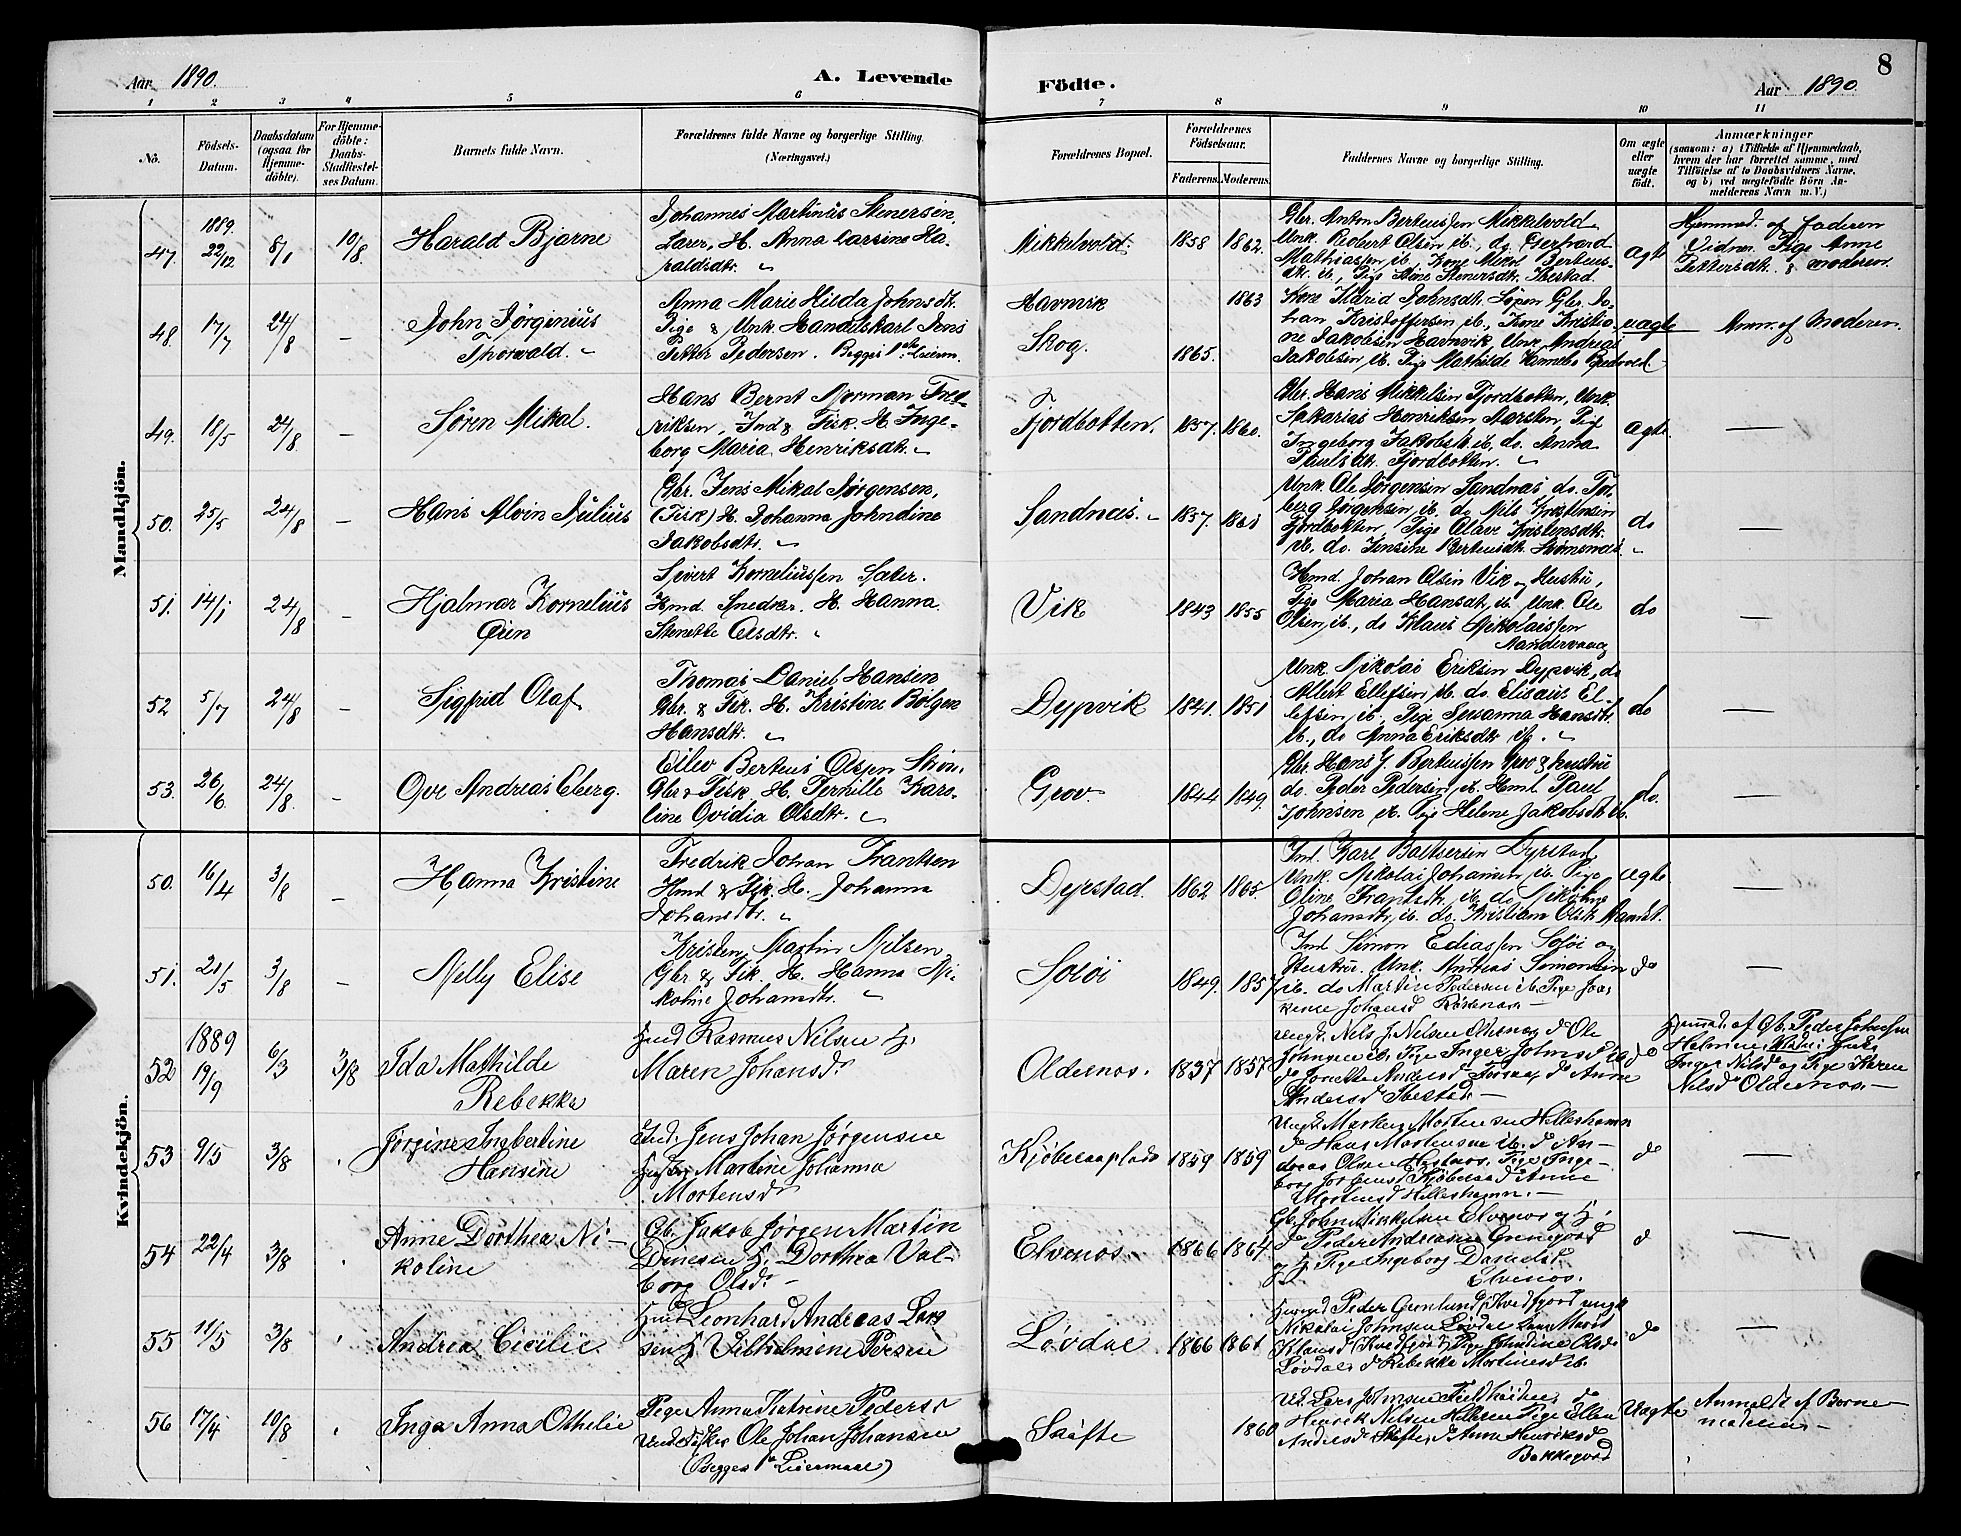 Aar 1890.
A. Levende
Födte.
Aar 1890
8
1 2 3 4 5 6 7 8 9 10 11
No.
Födsels-
Datum.
Daabsdatum
(ogsaa för
Hjemme-
döbte).
For Hjemme-
döbte:
Daabs-
Stadfæstel-
ses Datum.
Barnets fulde Navn.
Forældrenes fulde Navne og borgerlige Stilling.
(Næringsvei.)
Forældrenes Bopæl.
Forældrenes
Födselsaar.
Faderens. Moderens.
Faddernes Navne og borgerlige Stilling.
Om ægte
eller
uægte
født.
Anmærkninger
(saasom: a) i Tilfælde af Hjemmedaab,
hvem der har forrettet samme, med
Tilföielse af to Daabsvidners Navne,
og b) ved uægtefödte Börn An-
melderens Navn m. V.)
Mandkjön.
47. 1889. 22/12 8/1 10/8 Harald Bjarne
Johannes Martinus Stenersen,
Lærer, H. Anna Larsine Ha-
raldsdtr.
Mikkelvold. 1858 1862.
Gbr. Anton Berteussen Mikkelvold
Unk. Robert Olsen ib., do Gerhard
Mathiassen ib., Kone Mikol Berteus-
dt. ib., Pige Stine Stenersdt. Ibestad.
Ægte
Hjemmed. af Faderen
Vidner Pige Anne
Pettersdt. & Moderen.
48. 17/7 24/8 – John Jörginius
Thorvald.
Anna Marie Hilda Johnsdt.
Pige & Unk. Handelskarl Jens
Petter Pedersen. Begges 1ste Leierm.
Havnvik 1863
Skog. 1865.
Kone Ildrid Johnsdt. Löpen Gbr. Jo-
han Kristoffersen ib., Kone Kristia-
ne Jakobsen Havnvik, Unk. Andreas
Jakobsen ib. Pige Mathilde
uægte
Anm. af Moderen.
49. 18/5 24/8. – Sören Mikal.
Hans Bernt Norman Fred-
riksen, Ind & Fisk. H. Inge-
borg Maria Henriksdt.
Fjordbotten. 1857. 1860.
Gbr. Hans Mikkelsen Fjordbotten, Unk.
Sakarias Henriksen Aarsten, Pig
Ingeborg Jakobsdt. ib. do. Anna
Paulsdt. Fjordbotten.
Ægte.
50. 25/5 24/8 – Hans Alvin Julius
Gbr. Jens Mikal Jörgensen,
(Fisk) H. Johanna Johndine
Jakobsdtr.
Sandnæs. 1857. 1861
Unk. Ole Jörgensen Sandnæs do. Tor-
berg Jörgensen ib. do Nils Kristensen
Fjordbotten, Pige Olave Kristensdt.
ib. do. Jensine Berteusdt.
do
51. 14/1 24/8 – Hjalmar Kornelius
Öien
Sivert Korneliussen Sæter.
Hmd. Snedker. H. Hanna
Stenette Olsdtr.
Vik 1843 1855
Hmd. Johan Olsen Vik og Hustru,
Pige Maria Hansdt. ib. Unk. Ole
Olsen ib., do Klaus Nikolaissen
Sandervaag
do
52 5/7 24/8 – Sigfrid Olaf
Thomas Daniel Hansen
Gbr. & Fisk. H. Kristine Bolgen
Hansdtr.
Dypvik 1841. 1851
Unk. Nikolai Eriksen Dypvik, do
Albert Ellefsen ib. do. Elisæus El-
lefsen ib. Pige Susanna Hansdt.
ib., do Anna Eriksdt. ib.
do
53. 26/6 24/8. – Ove Andreas Eberg.
Eilev Berteus Olssen
Gbr & Fisk. H. Pernille Karo-
line Ovidia Olsdtr.
Grov. 1844 1849.
Gbr. Hans J. Berteussen Grov & Hustru
do. Peder Pedersen ib. Hmd. Paul
Johnsen ib. Pige Helene Jakobsdt. ib.
do.
Kvindekjön.
50. 16/4 3/8 – Hanna Kristine
Fredrik Johan Frantsen
Hmd & Fisk. H. Johanna
Johansdtr.
Dyrstad. 1862 1865.
Ind. Karl Baltsersen Dyrstad,
Unk. Nikolai Johansen ib. Pige
Oline Frantsdt. ib. do Nikoline
Johansdt. ib. do. Kristiane Olsdt.
Ægte.
51. 21/5 3/8 – Nelly Elise
Kristen Martin Nilsen
Gbr & Fisk. H. Hanna Ni-
koline Johansdtr.
Soløi 1849. 1857
Ind. Simon Ediassen Soløi og
Hustru. Unk. Andreas Simonsen
ib. do Martin Pedersen ib. Pige Joa-
kime Johansd Rörbenæs.
do
52 1889 19/9 6/3 3/8 Ida Mathilde
Rebekka
Hmd Rasmus Nilsen H.
Maren Johansd
Oldernæs. 1837 1857
Ungk. Nils J. Nilsen Oldernæs d Ole
Johnsen ib. Pige Inger Johnsd ib
d Jonette Andersd d Anne
Andersd Ibestad.
do
Hjemmed. af Gb. Peder Johnsen
Inger Nilsd og Pige Karen
Nilsd Oldernæs.
53 9/5 3/8 Jørgine Ingbertine
Hansine
Ind. Jens Johan Jørgensen
Martine Johanna
Mortensd
Kjøbersaaplads 1859 1859
Ungk. Markus Mortensen Hilleshamn
d Hans Mortensen ib. d An-
dreas Olsen Pige Inge-
borg Jørgensd Kjøbersaa d Anne
Mortensd Hilleshamn.
do
54 22/4 3/8 Anne Dorthea Ni-
koline
Gb. Jakob Jørgen Martin
Denesen H. Dorthea Val-
borg Olsd
Elvenæs 1866 1864
Gb. John Mikkelsen Elvenæs og H.
d Peder Andreasen
og H. Pige Ingeborg Danielsd
Elvenæs.
d
55 11/5 3/8 Andrea Cicilie
Hmd Leonhard Andreas Lars
sen H Vilhelmine Persen
Løvdal 1866 1861
Peder Grønlund (Kvedfjord) ungk
Nikolai Johnsen Løvdal
Klausd (Kvedfjord) Pige Johndine Olsd
Løvdal d Rebekka Martinesd ib.
do
56 17/4 10/8 Inga Anna Othelie
Pige Anna Katrine Pedersd
Ole Johan Johansen
(Begges 1ste Leiermaal)
Skøfte 1860
Lars Johnsen
Henrik Nilsen Pige Ellen
Andersd Skøfte, d Anne Henriksd
Bakkegord
Uægte
Anmeldt af Barne-
moderen